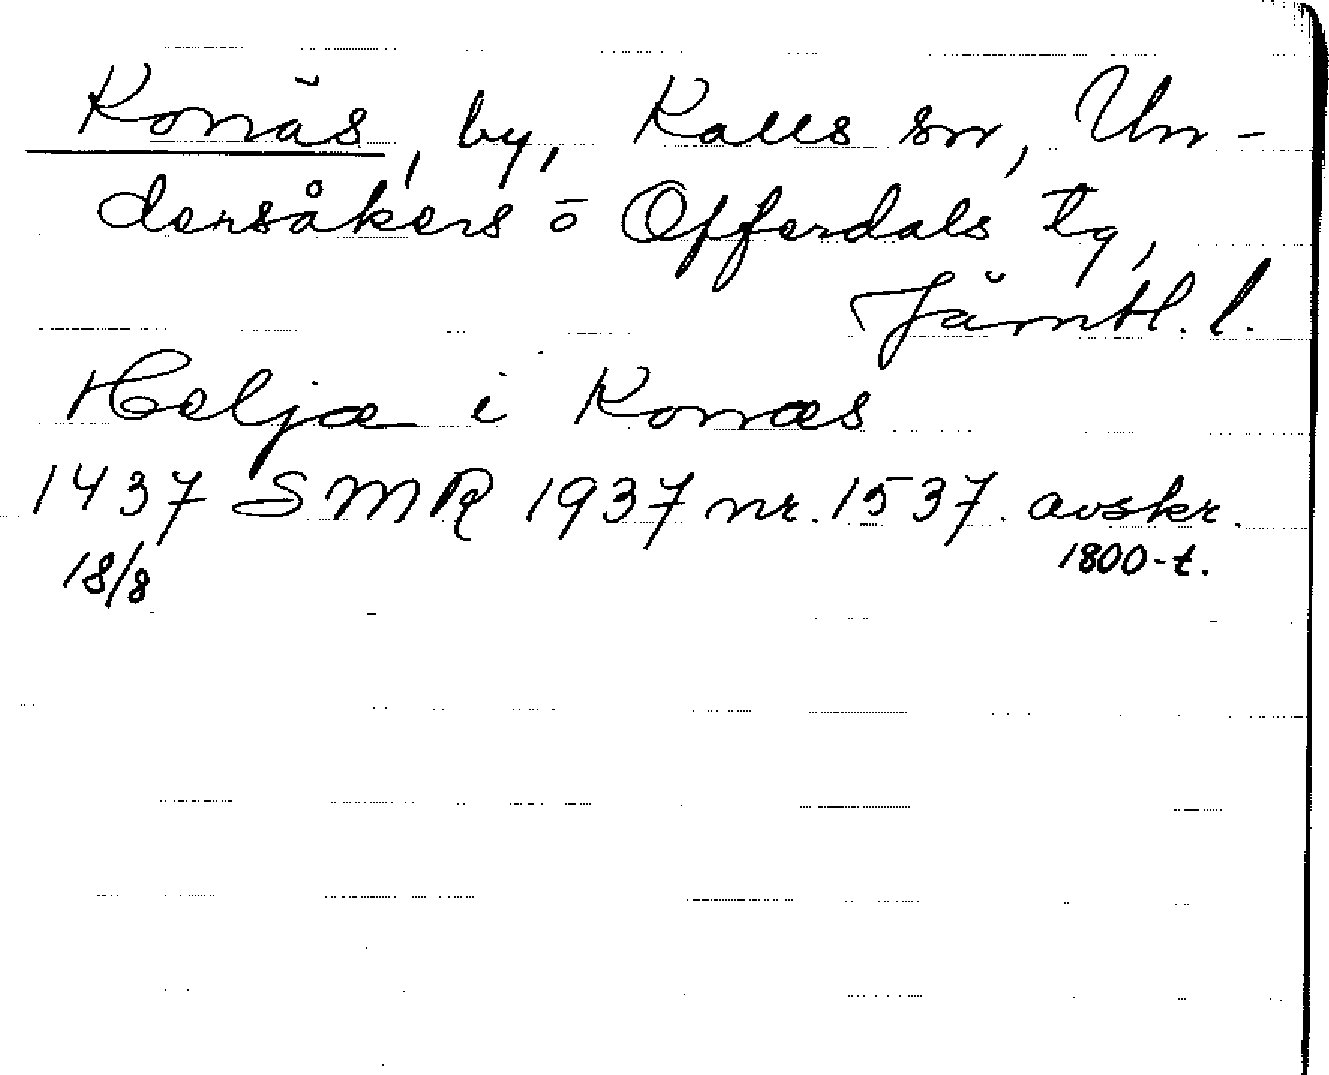 Konäs, by, Kalls sn, Un-
dersåkers o Offerdals tg,
Jämtl. l.
Helja i Konæs
1437 SMR 1937 nr. 1537. avskr.
18/8 1800-t.